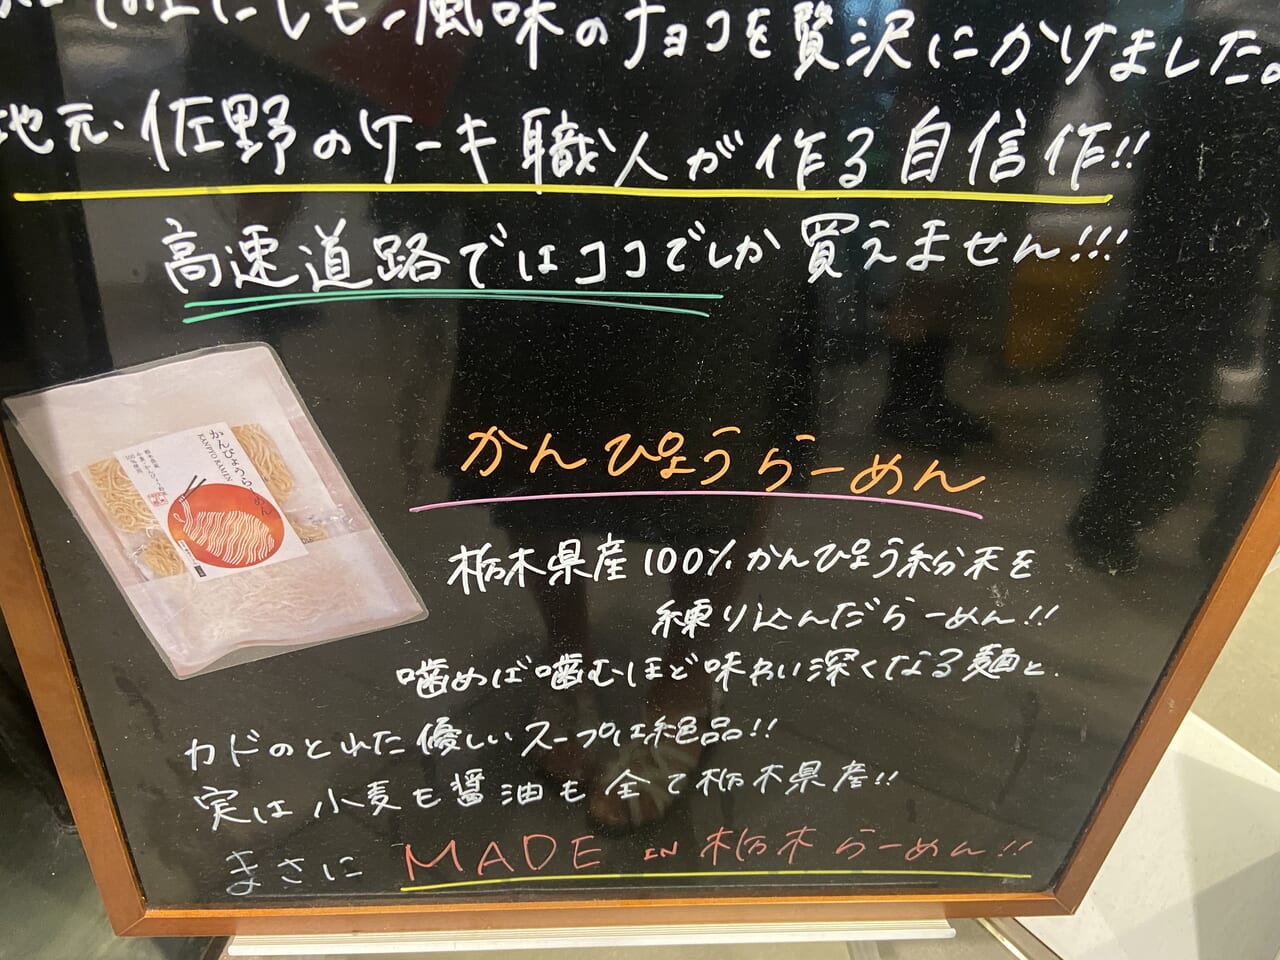 風味のチョコを贅沢にかけました。
地元・佐野のケーキ職人が作る自信作!!
高速道路ではココでしか買えません!!!
かんぴょうらーめん
KANPYO RAMEN
かんぴょうらーめん
栃木県産100%かんぴょう粉末を
練り込んだらーめん!!
噛めば噛むほど味わい深くなる麺と、
カドのとれた優しいスープは絶品!!
実は小麦も醤油も全て栃木県産!!
まさに MADE IN 栃木らーめん!!